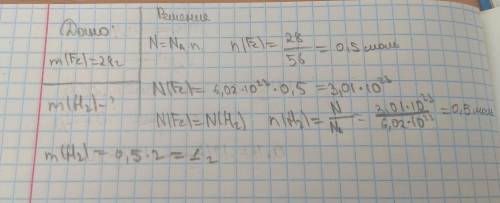 Дано:
m(Fe)=28г
m(H₂)-?
Решение
N=Nₐ·n. n(Fe)=28/56=0,5 моль
N(Fe)=6,02·10²³·0,5=3,01·10²³
N(Fe)=N(H₂) n(H₂)=N/Nₐ=3,01·10²³/6,02·10²³=0,5 моль
m(H₂)=0,5·2=1г